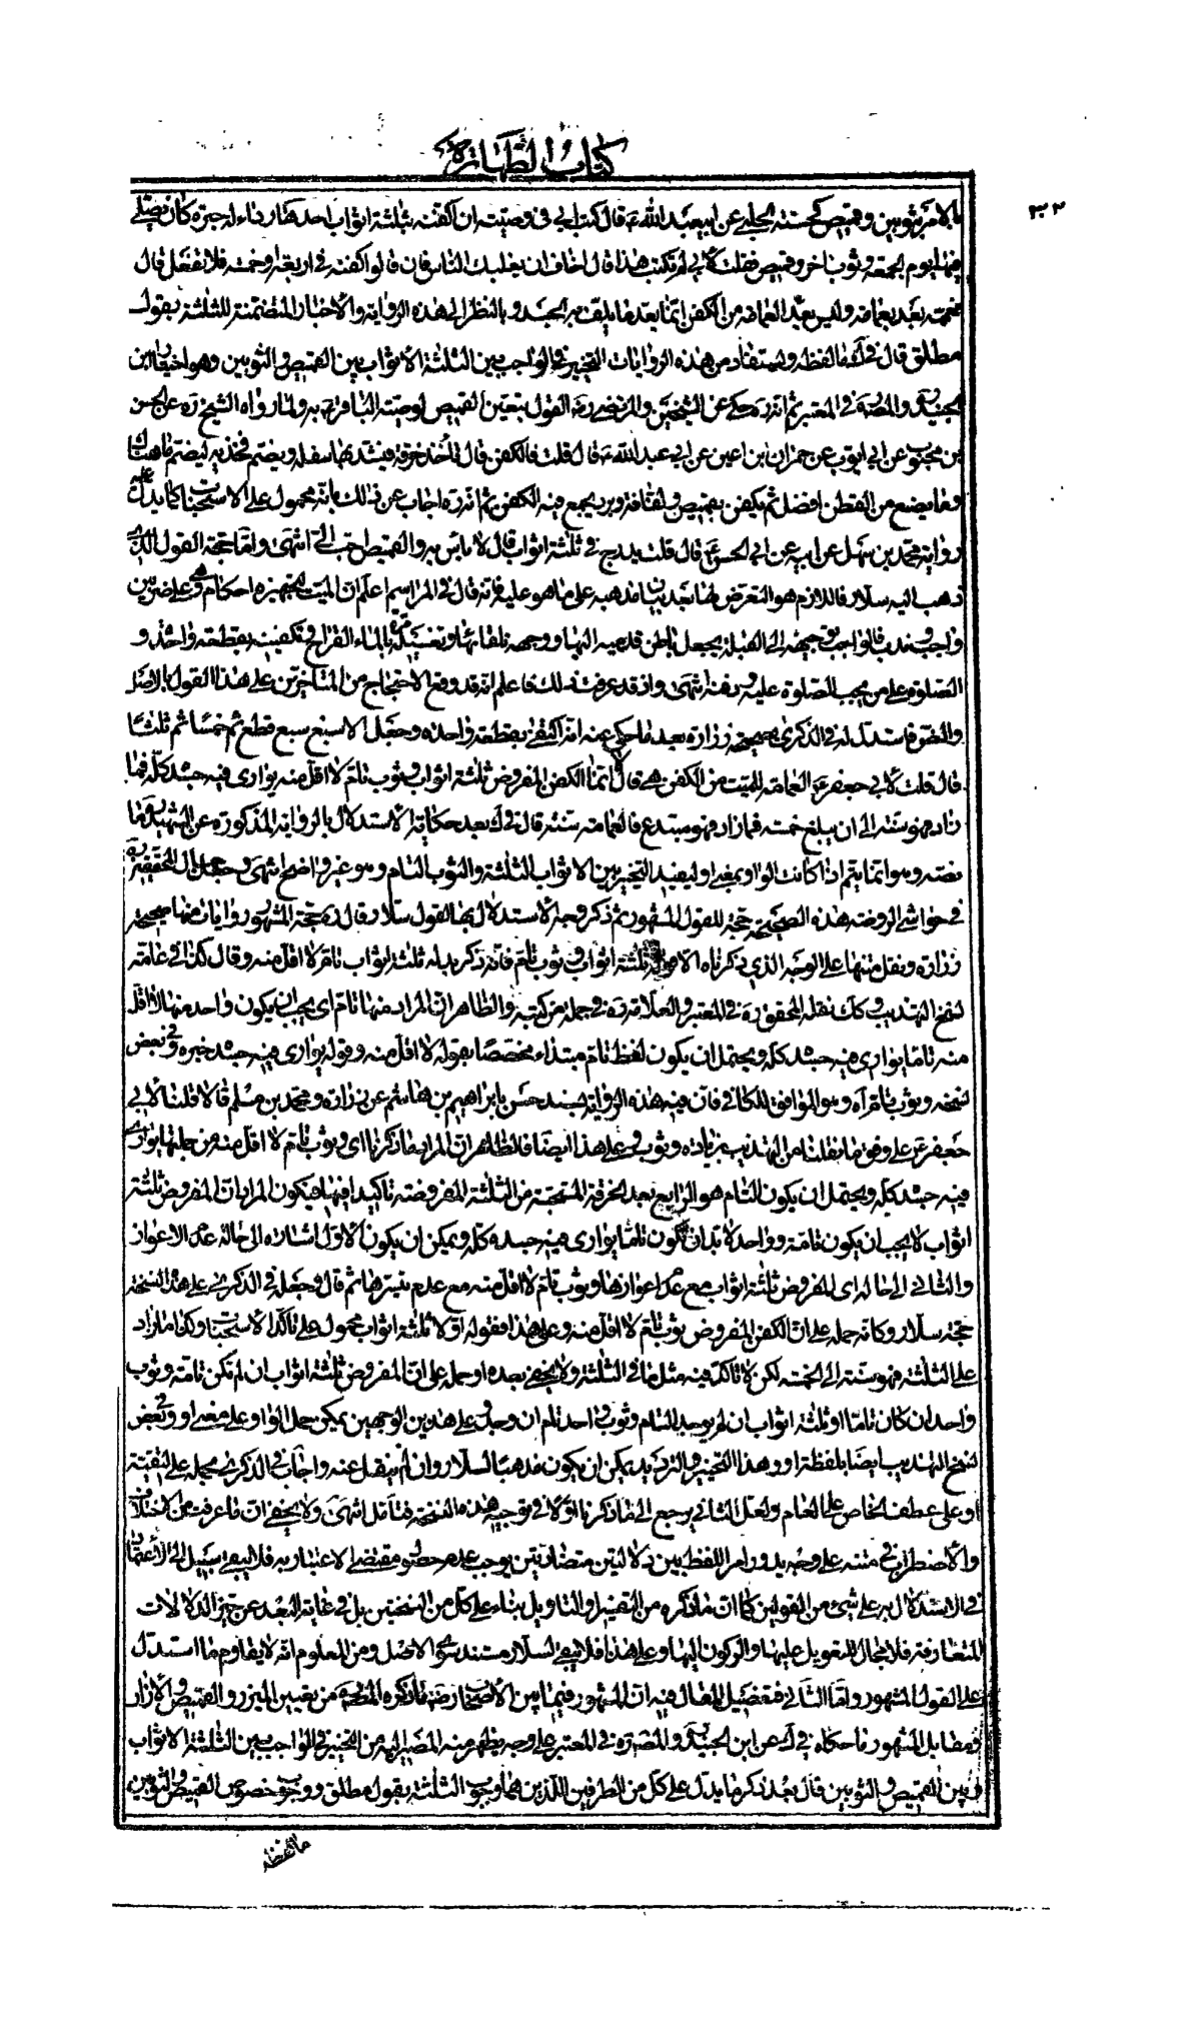 كتاب الطهارة
٣٢
بالامر بثوبين وقميص كحسنة الحلبي عن ابيعبد الله ع قال كتب ابي في وصيته ان اكفنه بثلثة اثواب احدها رداء له حبرة كان يصلي
فيها يوم الجمعة وثوب اخر وقميص فقلت لابي لم تكتب هذا قال اخاف ان يغلبك الناس فان قالوا كفنه في اربعة او خمسة فلا تفعل قال
عممه بعد بعمامة وليس بعد العمامة من الكفن انما يعد ما يلف به الجسد وبالنظر الى هذه الرواية والاخبار المتضمنة للثلثة بقول
مطلق قال في ك ما لفظه ويستفاد من هذه الروايات التخيير في الواجب بين الثلثة الاثواب وبين القميص والثوبين وهو اختيار ابن
الجنيد والمصنف في المعتبر ثم انه ره حكى عن الشيخين والمرتضى رض القول بتعين القميص لوصية الباقر ع به ولما رواه الشيخ ره عن الحسن
بن محبوب عن ابي ايوب عن حمران بن اعين عن ابي عبد الله ع قال قلت فالكفن قال تأخذ خرقة فيشد بها سفله ويضم فخذيه ليضم ما هناك
وما يصنع من القطن افضل ثم يكفن بقميص ولفافة وبرد يجمع فيه الكفن ثم انه ره اجاب عن ذلك بانه محمول على الاستحباب كما يدل عليه
رواية محمد بن سهل عن ابيه عن ابي الحسن ع قال قلت يدرج في ثلثة اثواب قال لا باس به والقميص احب الي انتهى واما حجة القول الذي
ذهب اليه سلار فاللازم هو التعرض لها بعد بيان مذهبه على ما هو عليه فانه قال في المراسم اعلم ان الميت لتجهيزه احكام وهي على ضربين
واجب وندب فالواجب توجيهه الى القبلة يجعل باطن قدميه اليها ووجهه تلقائها وتغسيله مرة بالماء القراح وتكفينه بقطعة واحدة و
الصلوة على من يجب الصلوة عليه ودفنه انتهى واذ قد عرفت ذلك فاعلم انه قد وقع الاحتجاج من المتاخرين على هذا القول بالاصل
والنص فاستدل له في الذكرى بصحيحة زرارة بعد ما حكي عنه انه اكتفى بقطعة واحدة وجعل الاسبغ سبع قطع ثم خمسا ثم ثلثا
قال قلت لابي جعفر ع العمامة للميت من الكفن هي قال لا انما الكفن المفروض ثلثة اثواب وثوب تام لا اقل منه يواري فيه جسده كله فما
زاد فهو سنة الى ان يبلغ خمسة فما زاد فهو مبتدع والعمامة سنة قال في ك بعد حكاية الاستدلال بالرواية المذكورة عن الشهيد ما
نصه وهو انما يتم اذا كانت الواو بمعنى او ليفيد التخيير بين الاثواب الثلثة والثوب التام وهو غير واضح انتهى وجعل جمال المحققين
في حواشي الروضة هذه الصحيحة حجة للقول المشهور ثم ذكر وجه الاستدلال بها لقول سلار قال ره حجة المشهور روايات منها صحيحة
زرارة ونقل متنها على الوجه الذي ذكرناه الا ثلثة اثواب وثوب تام فانه ذكر بدله ثلثة اثواب تام لا اقل منه وقال كذا في عامة
نسخ التهذيب وكك نقله المحقق ره في المعتبر والعلامة ره في جملة من كتبه والظاهر ان المراد منها تام اي يجب ان يكون واحد منها لا اقل
منه تاما يواري فيه جسده كله ويحتمل ان يكون لفظ تام مبتداء مخصصا بقوله لا اقل منه وقوله يواري فيه جسده خبره وفي بعض
نسخه وثوب تام آه وهو الموافق للكافي فان فيه هذه الرواية بسند حسن بابراهيم بن هاشم عن زرارة ومحمد بن مسلم قالا قلنا لابي
جعفر ع على وفق ما نقلنا من التهذيب بزيادة وثوب وعلى هذا ايضا فالظاهر ان المراد ما ذكرنا اي وثوب تام لا اقل منه من جملتها يواري
فيه جسده كله ويحتمل ان يكون التام هو الرابع بعد الخرقة المستحبة من الثلثة المفروضة تاكيدا فيها فيكون المراد ان المفروض ثلثة
اثواب لا يجب ان يكون تامة وواحد لابد ان يكون تاما يواري فيه جسده كله ويمكن ان يكون الاول اشارة الى حالة عدم الاعواز
والثاني الى حاله اي المفروض ثلثة اثواب مع عدم اعوازها وثوب تام لا اقل منه مع عدم تيسرها ثم قال وجعل في الذكرى على هذا النسخة
حجة سلار وكانه حمله على ان الكفن المفروض ثوب تام لا اقل منه وعلى هذا فقوله اولا ثلثة اثواب محمول على تأكد الاستحباب وكذا ما زاد
على الثلثة فهو سنة الى الخمسة لكن لا تأكد فيه مثل ما في الثلثة ولا يخفى بعده او حمله على ان المفروض ثلثة اثواب ان لم تكن تامة وثوب
واحد ان كان تاما او ثلثة اثواب ان لم يوجد التام وثوب واحد تام ان وجد وعلى هذين الوجهين يمكن حمل الواو على معنى او وفي بعض
نسخ التهذيب ايضا بلفظة او وهذا التخيير والترديد يمكن ان يكون مذهبا لسلار وان لم ينقل عنه واجاب في الذكرى بحمله على التقية
او على عطف الخاص على العام ولعل الثاني يرجع الى ما ذكرنا اولا في توجيه هذه النسخة فتامل انتهى ولا يخفى ان ما عرفت من الاختلاف
والاضطراب في متنه على وجه يدور امر اللفظ بين دلالتين متضادتين يوجب عدم حصول مقتضى الاعتبار به فلا يبقى سبيل الى الاعتماد
في الاستدلال به على شيء من القولين كما ان ما ذكره من التفسير والتاويل بناء على كل من النسختين بل في غاية البعد عن حيز الدلالات
المتعارفة فلا مجال للتعويل عليها والركون اليها وعلى هذا فلا يبقى لسلار مستند سوى الاصل ومن المعلوم انه لا يقاوم ما استدل
على القول المشهور واما الثاني فتفصيل المقال فيه ان المشهور فيما بين الاصحاب رض ما ذكره المصنف ره من تعيين الميزر والقميص والازار
ومقابل المشهور ما حكاه في ك عن ابن الجنيد والمصنف ره في المعتبر على وجه يظهر منه المصير اليه من التخيير في الواجب بين الثلثة الاثواب
وبين القميص والثوبين قال بعد ذكر ما يدل على كل من الطرفين اللذين هما وجوب الثلثة بقول مطلق ووجوب خصوص القميص والثوبين
ما لفظه